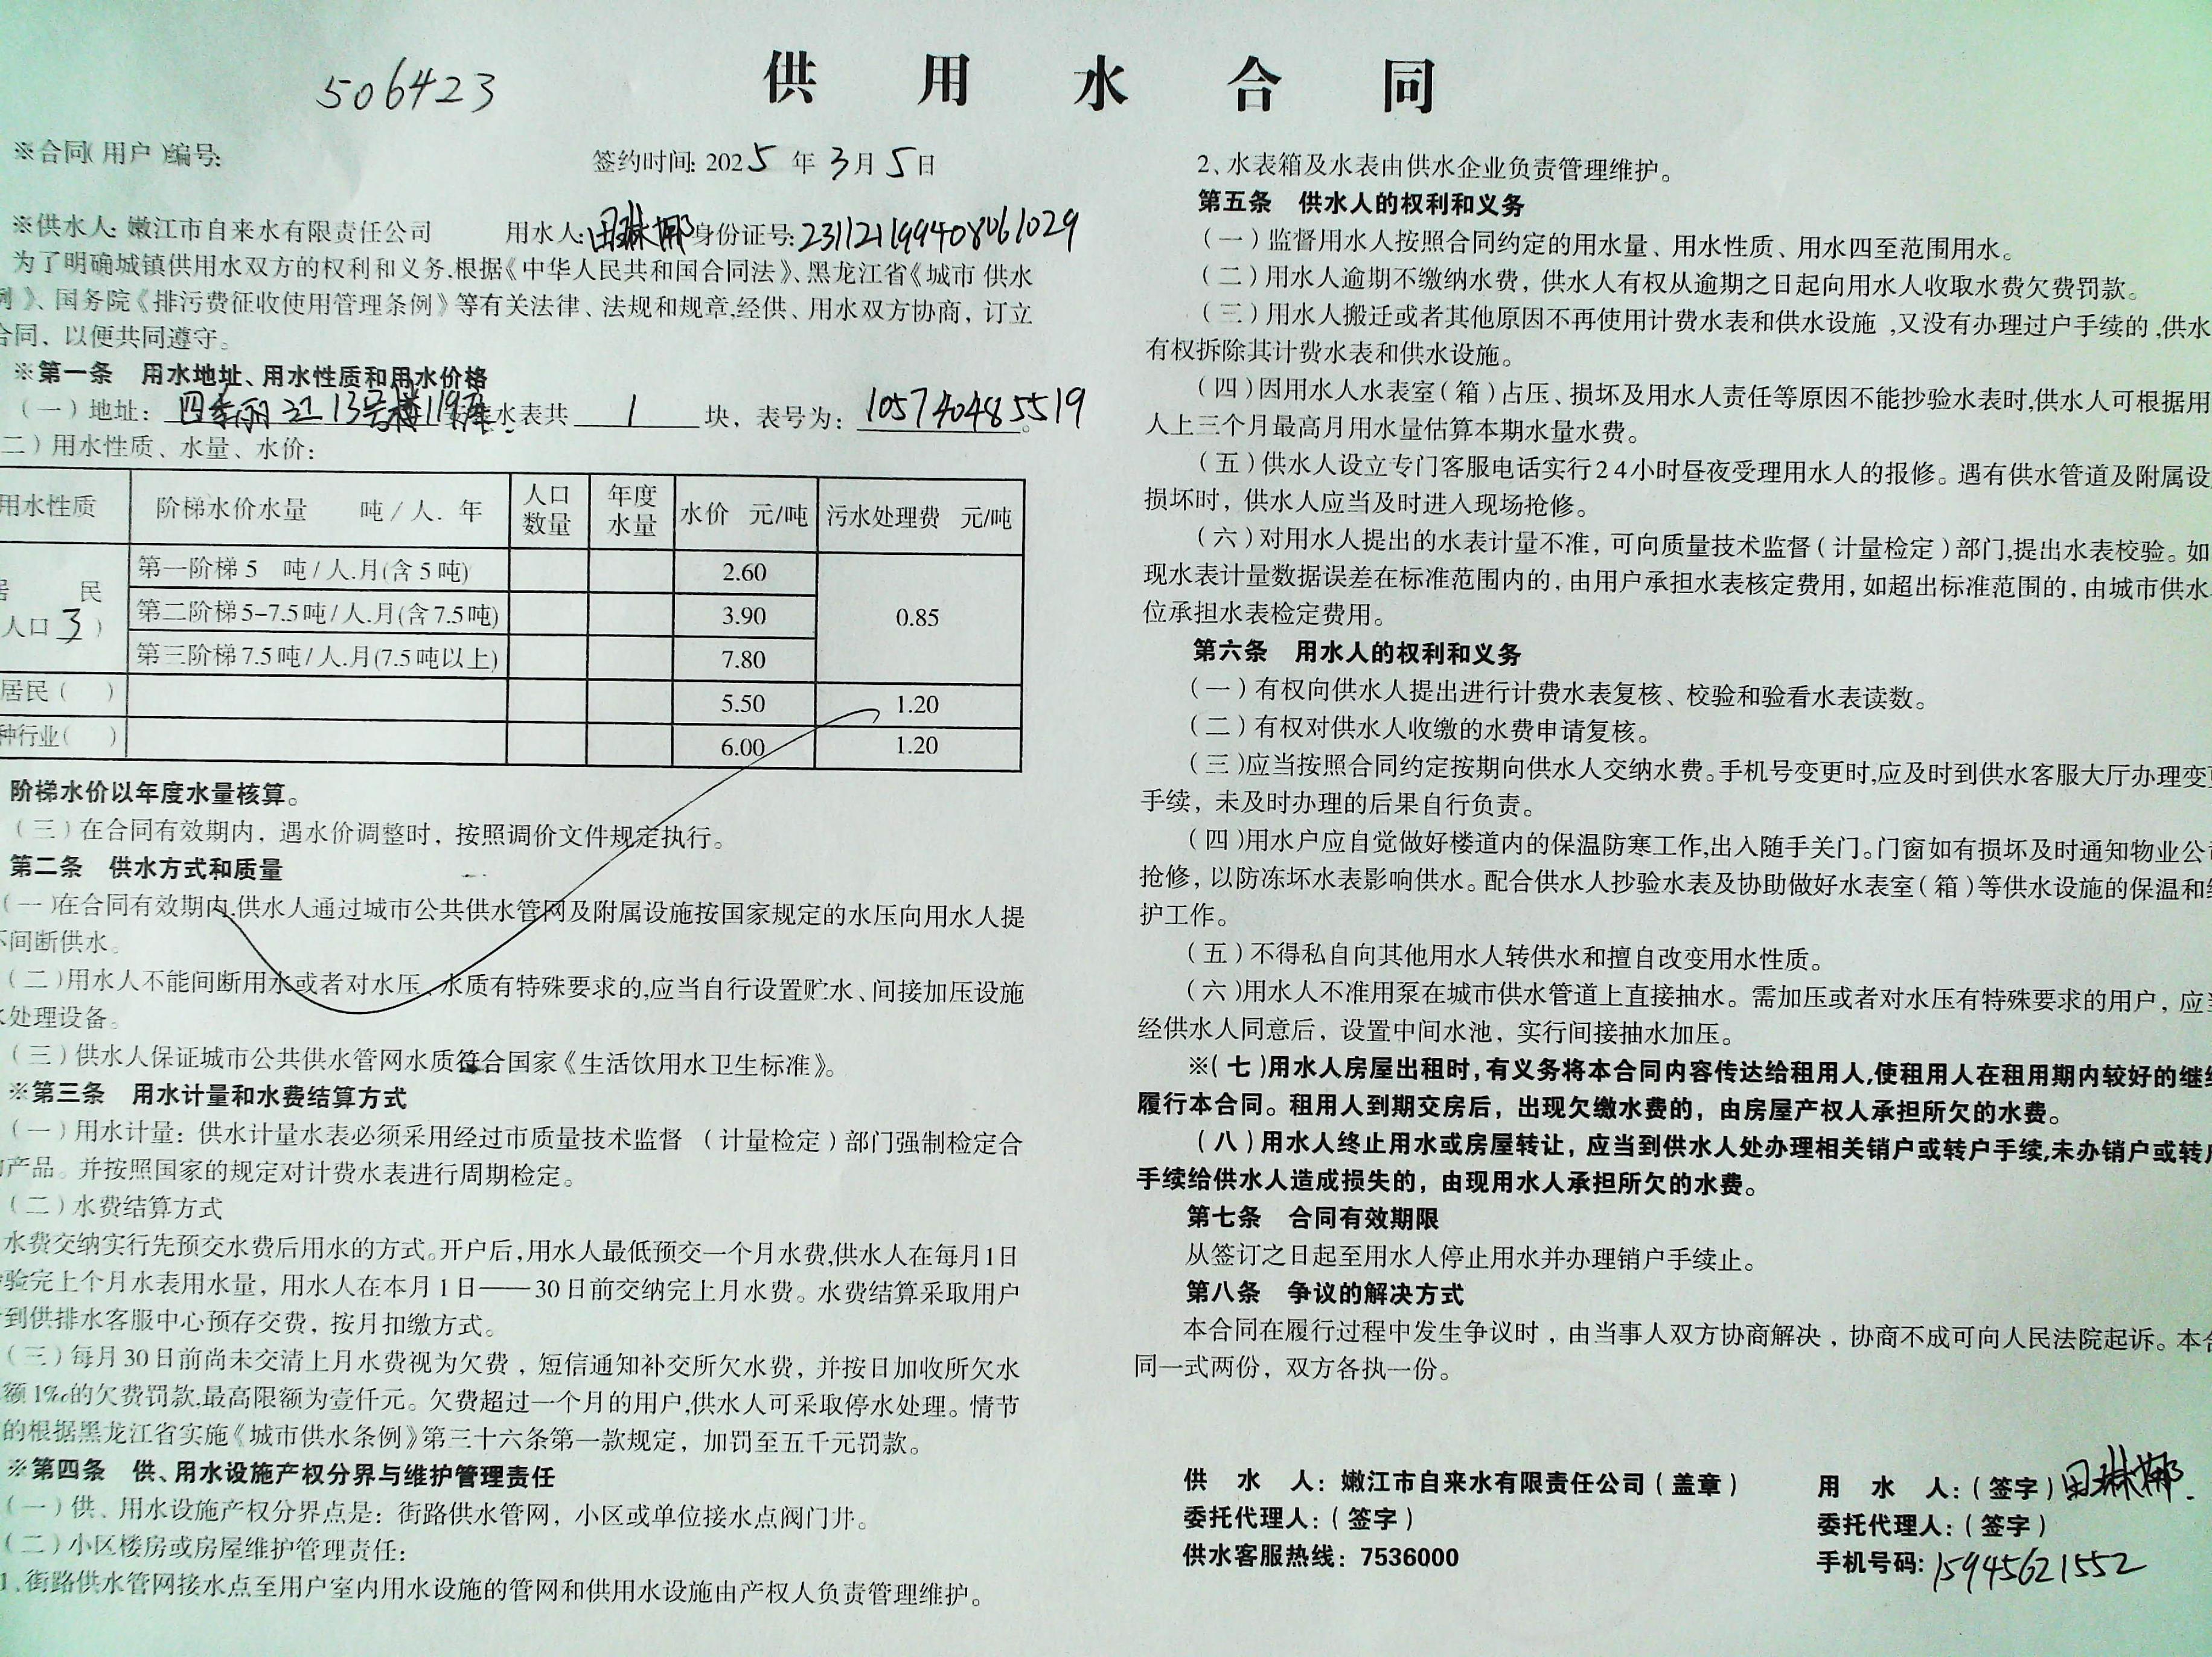 供用水合同
506423
※合同(用户)编号:
签约时间: 2025年3月5日
※供水人: 嫩江市自来水有限责任公司 用水人: 田琳娜 身份证号: 231121199408061029
为了明确城镇供用水双方的权利和义务,根据《中华人民共和国合同法》、黑龙江省《城市供水
例》、国务院《排污费征收使用管理条例》等有关法律、法规和规章,经供、用水双方协商，订立
合同、以便共同遵守。
※第一条 用水地址、用水性质和用水价格
(一)地址: 四季丽江13号楼119 水表共 1 块，表号为: 105740485519。
二)用水性质、水量、水价:
用水性质 阶梯水价水量 吨/人.年 人口数量 年度水量 水价 元/吨 污水处理费 元/吨
居民 人口3) 第一阶梯5 吨/人.月(含5吨) 2.60 0.85
第二阶梯5-7.5吨/人.月(含7.5吨) 3.90
第三阶梯7.5吨/人.月(7.5吨以上) 7.80
居民( ) 5.50 1.20
种行业( ) 6.00 1.20
阶梯水价以年度水量核算。
(三)在合同有效期内，遇水价调整时，按照调价文件规定执行。
第二条 供水方式和质量
(一)在合同有效期内,供水人通过城市公共供水管网及附属设施按国家规定的水压向用水人提
不间断供水。
(二)用水人不能间断用水或者对水压、水质有特殊要求的,应当自行设置贮水、间接加压设施
水处理设备。
(三)供水人保证城市公共供水管网水质符合国家《生活饮用水卫生标准》。
※第三条 用水计量和水费结算方式
(一)用水计量：供水计量水表必须采用经过市质量技术监督 (计量检定)部门强制检定合
的产品。并按照国家的规定对计费水表进行周期检定。
(二)水费结算方式
水费交纳实行先预交水费后用水的方式。开户后,用水人最低预交一个月水费,供水人在每月1日
验完上个月水表用水量，用水人在本月1日——30日前交纳完上月水费。水费结算采取用户
到供排水客服中心预存交费，按月扣缴方式。
(三)每月30日前尚未交清上月水费视为欠费，短信通知补交所欠水费，并按日加收所欠水
额1‰的欠费罚款,最高限额为壹仟元。欠费超过一个月的用户,供水人可采取停水处理。情节
的根据黑龙江省实施《城市供水条例》第三十六条第一款规定，加罚至五千元罚款。
※第四条 供、用水设施产权分界与维护管理责任
(一)供、用水设施产权分界点是：街路供水管网，小区或单位接水点阀门井。
(二)小区楼房或房屋维护管理责任:
1、街路供水管网接水点至用户室内用水设施的管网和供用水设施由产权人负责管理维护。
2、水表箱及水表由供水企业负责管理维护。
第五条 供水人的权利和义务
(一)监督用水人按照合同约定的用水量、用水性质、用水四至范围用水。
(二)用水人逾期不缴纳水费，供水人有权从逾期之日起向用水人收取水费欠费罚款。
(三)用水人搬迁或者其他原因不再使用计费水表和供水设施,又没有办理过户手续的,供水
有权拆除其计费水表和供水设施。
(四)因用水人水表室(箱)占压、损坏及用水人责任等原因不能抄验水表时,供水人可根据用
人上三个月最高月用水量估算本期水量水费。
(五)供水人设立专门客服电话实行24小时昼夜受理用水人的报修。遇有供水管道及附属设
损坏时，供水人应当及时进入现场抢修。
(六)对用水人提出的水表计量不准，可向质量技术监督(计量检定)部门,提出水表校验。如
现水表计量数据误差在标准范围内的，由用户承担水表核定费用，如超出标准范围的，由城市供水
位承担水表检定费用。
第六条 用水人的权利和义务
(一)有权向供水人提出进行计费水表复核、校验和验看水表读数。
(二)有权对供水人收缴的水费申请复核。
(三)应当按照合同约定按期向供水人交纳水费。手机号变更时,应及时到供水客服大厅办理变更
手续，未及时办理的后果自行负责。
(四)用水户应自觉做好楼道内的保温防寒工作,出入随手关门。门窗如有损坏及时通知物业公司
抢修，以防冻坏水表影响供水。配合供水人抄验水表及协助做好水表室(箱)等供水设施的保温和维
护工作。
(五)不得私自向其他用水人转供水和擅自改变用水性质。
(六)用水人不准用泵在城市供水管道上直接抽水。需加压或者对水压有特殊要求的用户，应当
经供水人同意后，设置中间水池，实行间接抽水加压。
※(七)用水人房屋出租时，有义务将本合同内容传达给租用人,使租用人在租用期内较好的继续
履行本合同。租用人到期交房后，出现欠缴水费的，由房屋产权人承担所欠的水费。
(八)用水人终止用水或房屋转让，应当到供水人处办理相关销户或转户手续,未办销户或转户
手续给供水人造成损失的，由现用水人承担所欠的水费。
第七条 合同有效期限
从签订之日起至用水人停止用水并办理销户手续止。
第八条 争议的解决方式
本合同在履行过程中发生争议时，由当事人双方协商解决，协商不成可向人民法院起诉。本合
同一式两份，双方各执一份。
供 水 人：嫩江市自来水有限责任公司(盖章)
委托代理人：(签字)
供水客服热线：7536000
用 水 人：(签字)田琳娜.
委托代理人：(签字)
手机号码: 15945621552